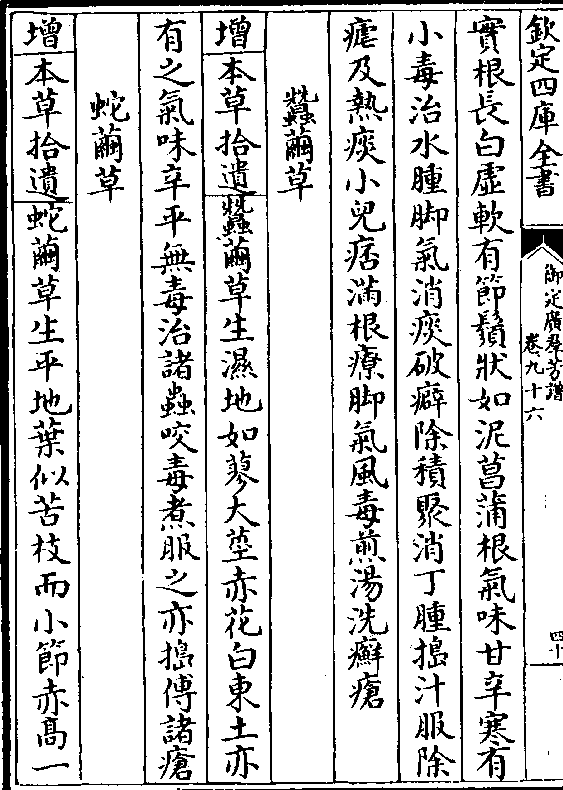 欽定四庫全書
御定廣羣芳譜
卷九十六
四十
實根長白虛軟有節鬚狀如泥菖蒲根氣味甘辛寒有
小毒治水腫脚氣消痰破癖除積聚消丁腫搗汁服除
瘧及熱痰小兒痞滿根療脚氣風毒煎湯洗癬瘡
蠶繭草
增本草拾遺蠶繭草生濕地如蓼大莖赤花白東土亦
有之氣味辛平無毒治諸蟲咬毒煮服之亦搗傅諸瘡
蛇繭草
增本草拾遺蛇繭草生平地葉似苦枝而小節赤髙一